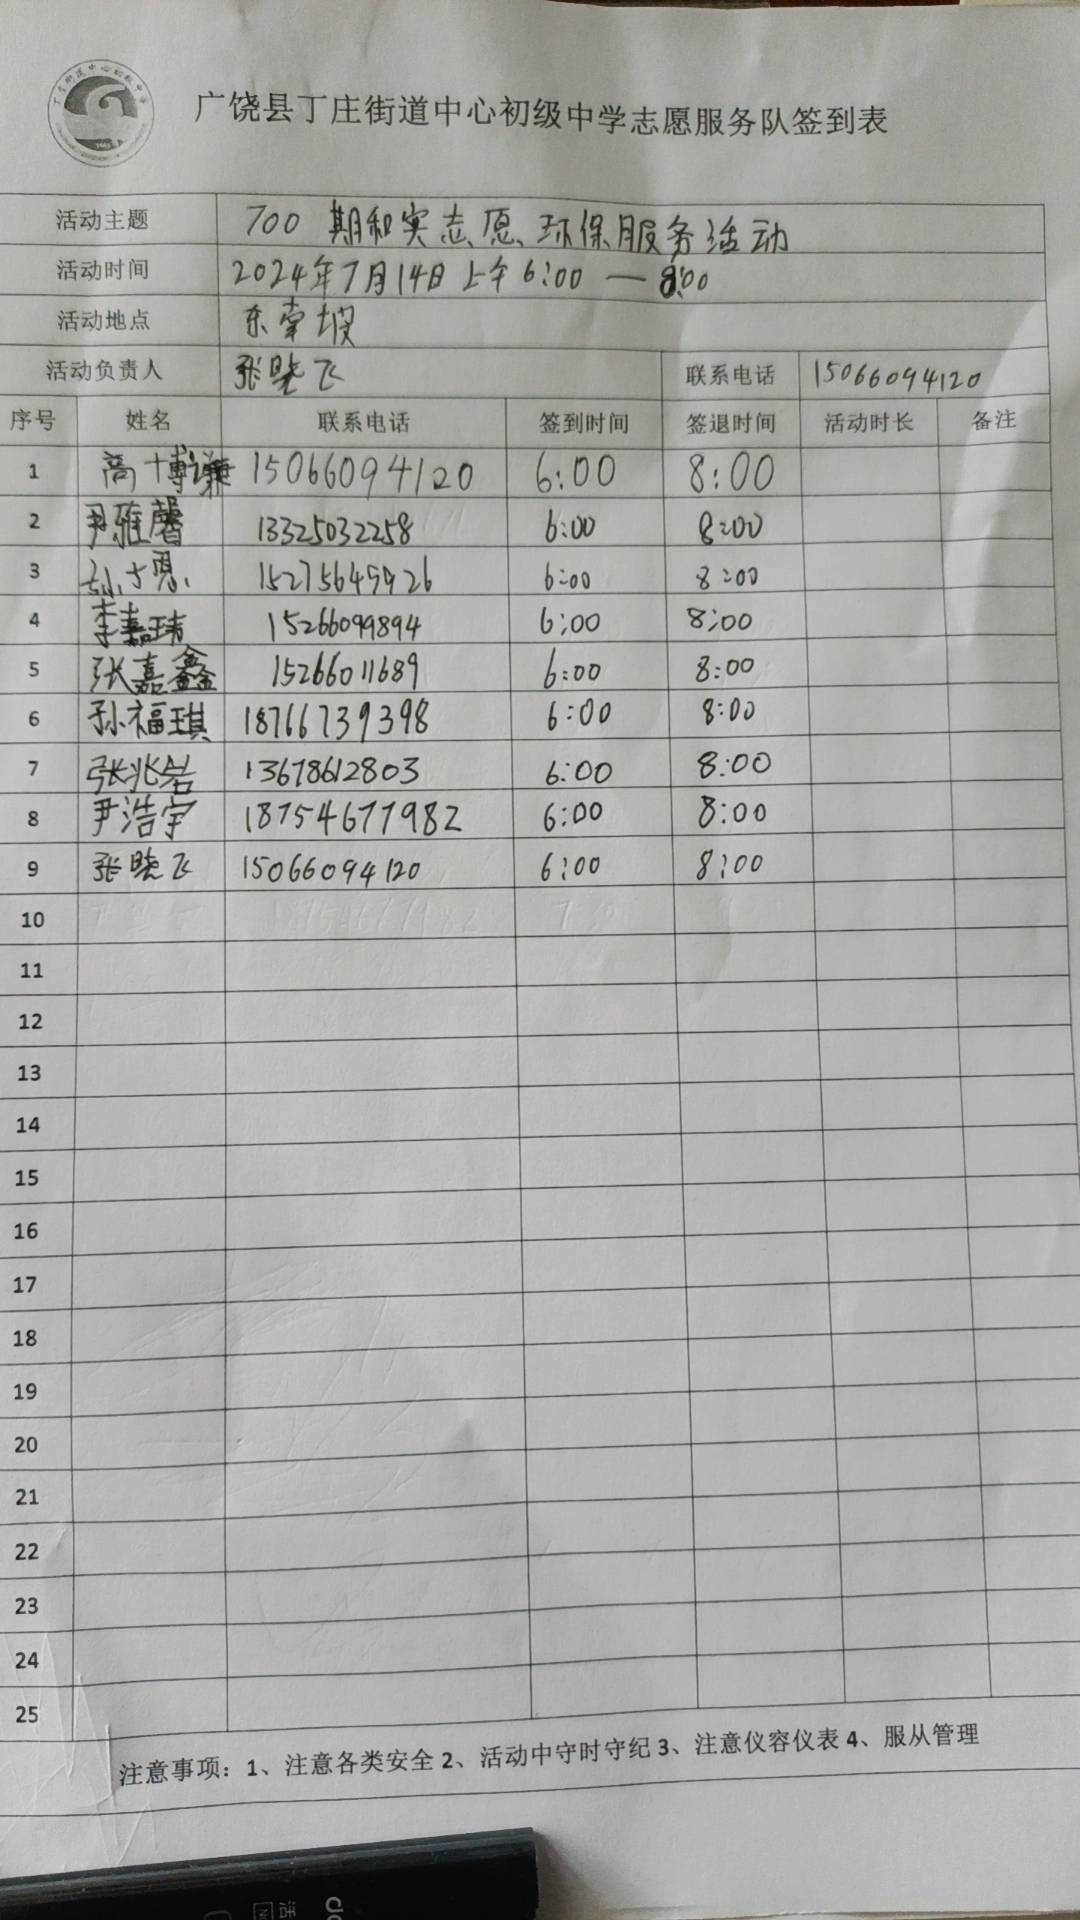 广饶县丁庄街道中心初级中学志愿服务队签到表
活动主题 700期和实志愿环保服务活动
活动时间 2024年7月14日上午6:00—8:00
活动地点 东营坡
活动负责人 张晓飞 联系电话 15066094120
序号 姓名 联系电话 签到时间 签退时间 活动时长 备注
1 高博谦 15066094120 6:00 8:00
2 尹雅馨 13325032258 6:00 8:00
3 15275649926 6:00 8:00
4 李嘉玮 15266099894 6:00 8:00
5 张嘉鑫 15266011689 6:00 8:00
6 孙福琪 18766739398 6:00 8:00
7 张兆岩 13678612803 6:00 8:00
8 尹浩宇 18754677982 6:00 8:00
9 张晓飞 15066094120 6:00 8:00
10
11
12
13
14
15
16
17
18
19
20
21
22
23
24
25
注意事项：1、注意各类安全 2、活动中守时守纪 3、注意仪容仪表 4、服从管理